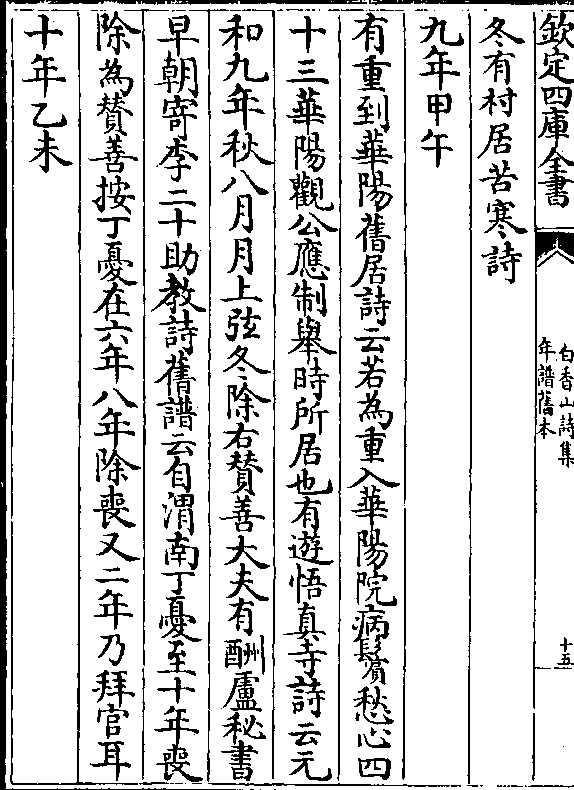 欽定四庫全書
白香山詩集
年譜舊本
十五
冬有村居苦寒詩
九年甲午
有重到華陽舊居詩云若為重入華陽院病鬢愁心四
十三華陽觀公應制舉時所居也有遊悟真寺詩云元
和九年秋八月月上弦冬除右賛善大夫有酬盧秘書
早朝寄李二十助教詩舊譜云自渭南丁憂至十年喪
除為賛善按丁憂在六年八年除喪又二年乃拜官耳
十年乙未